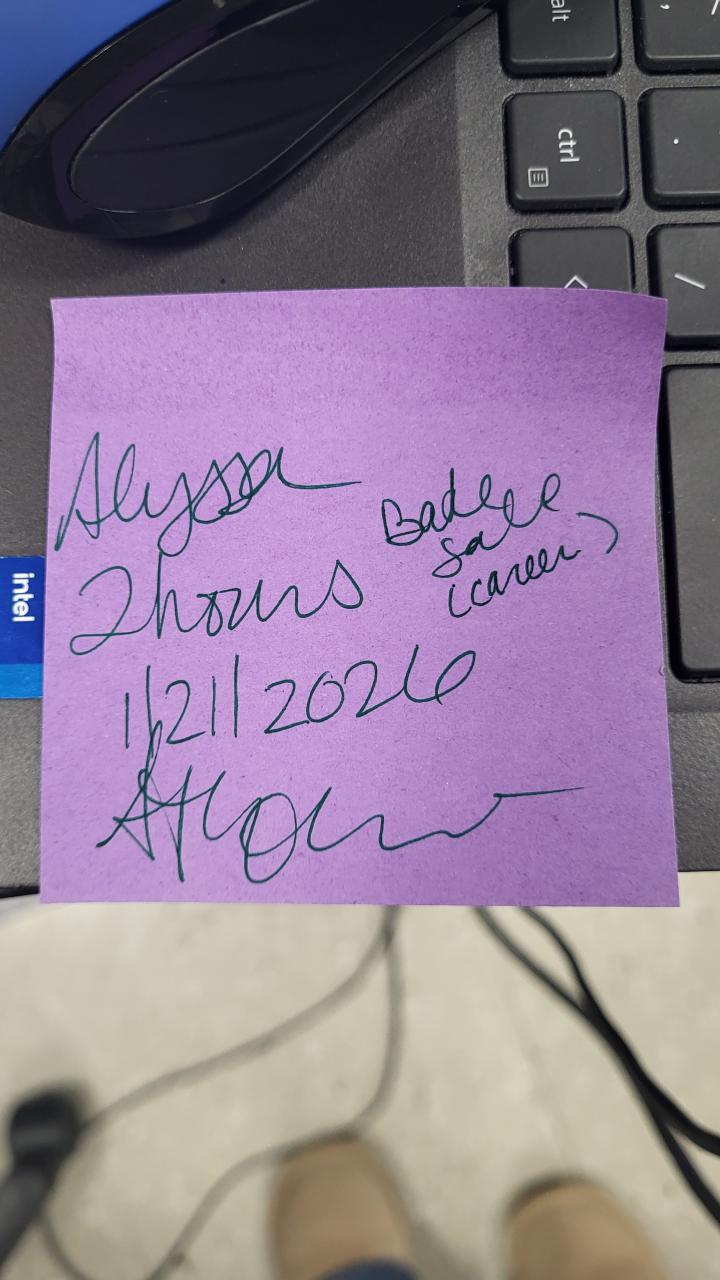 alt
ctrl
Alyssa
Bake
Sale
(career)
2 hours
1/21/2026
intel